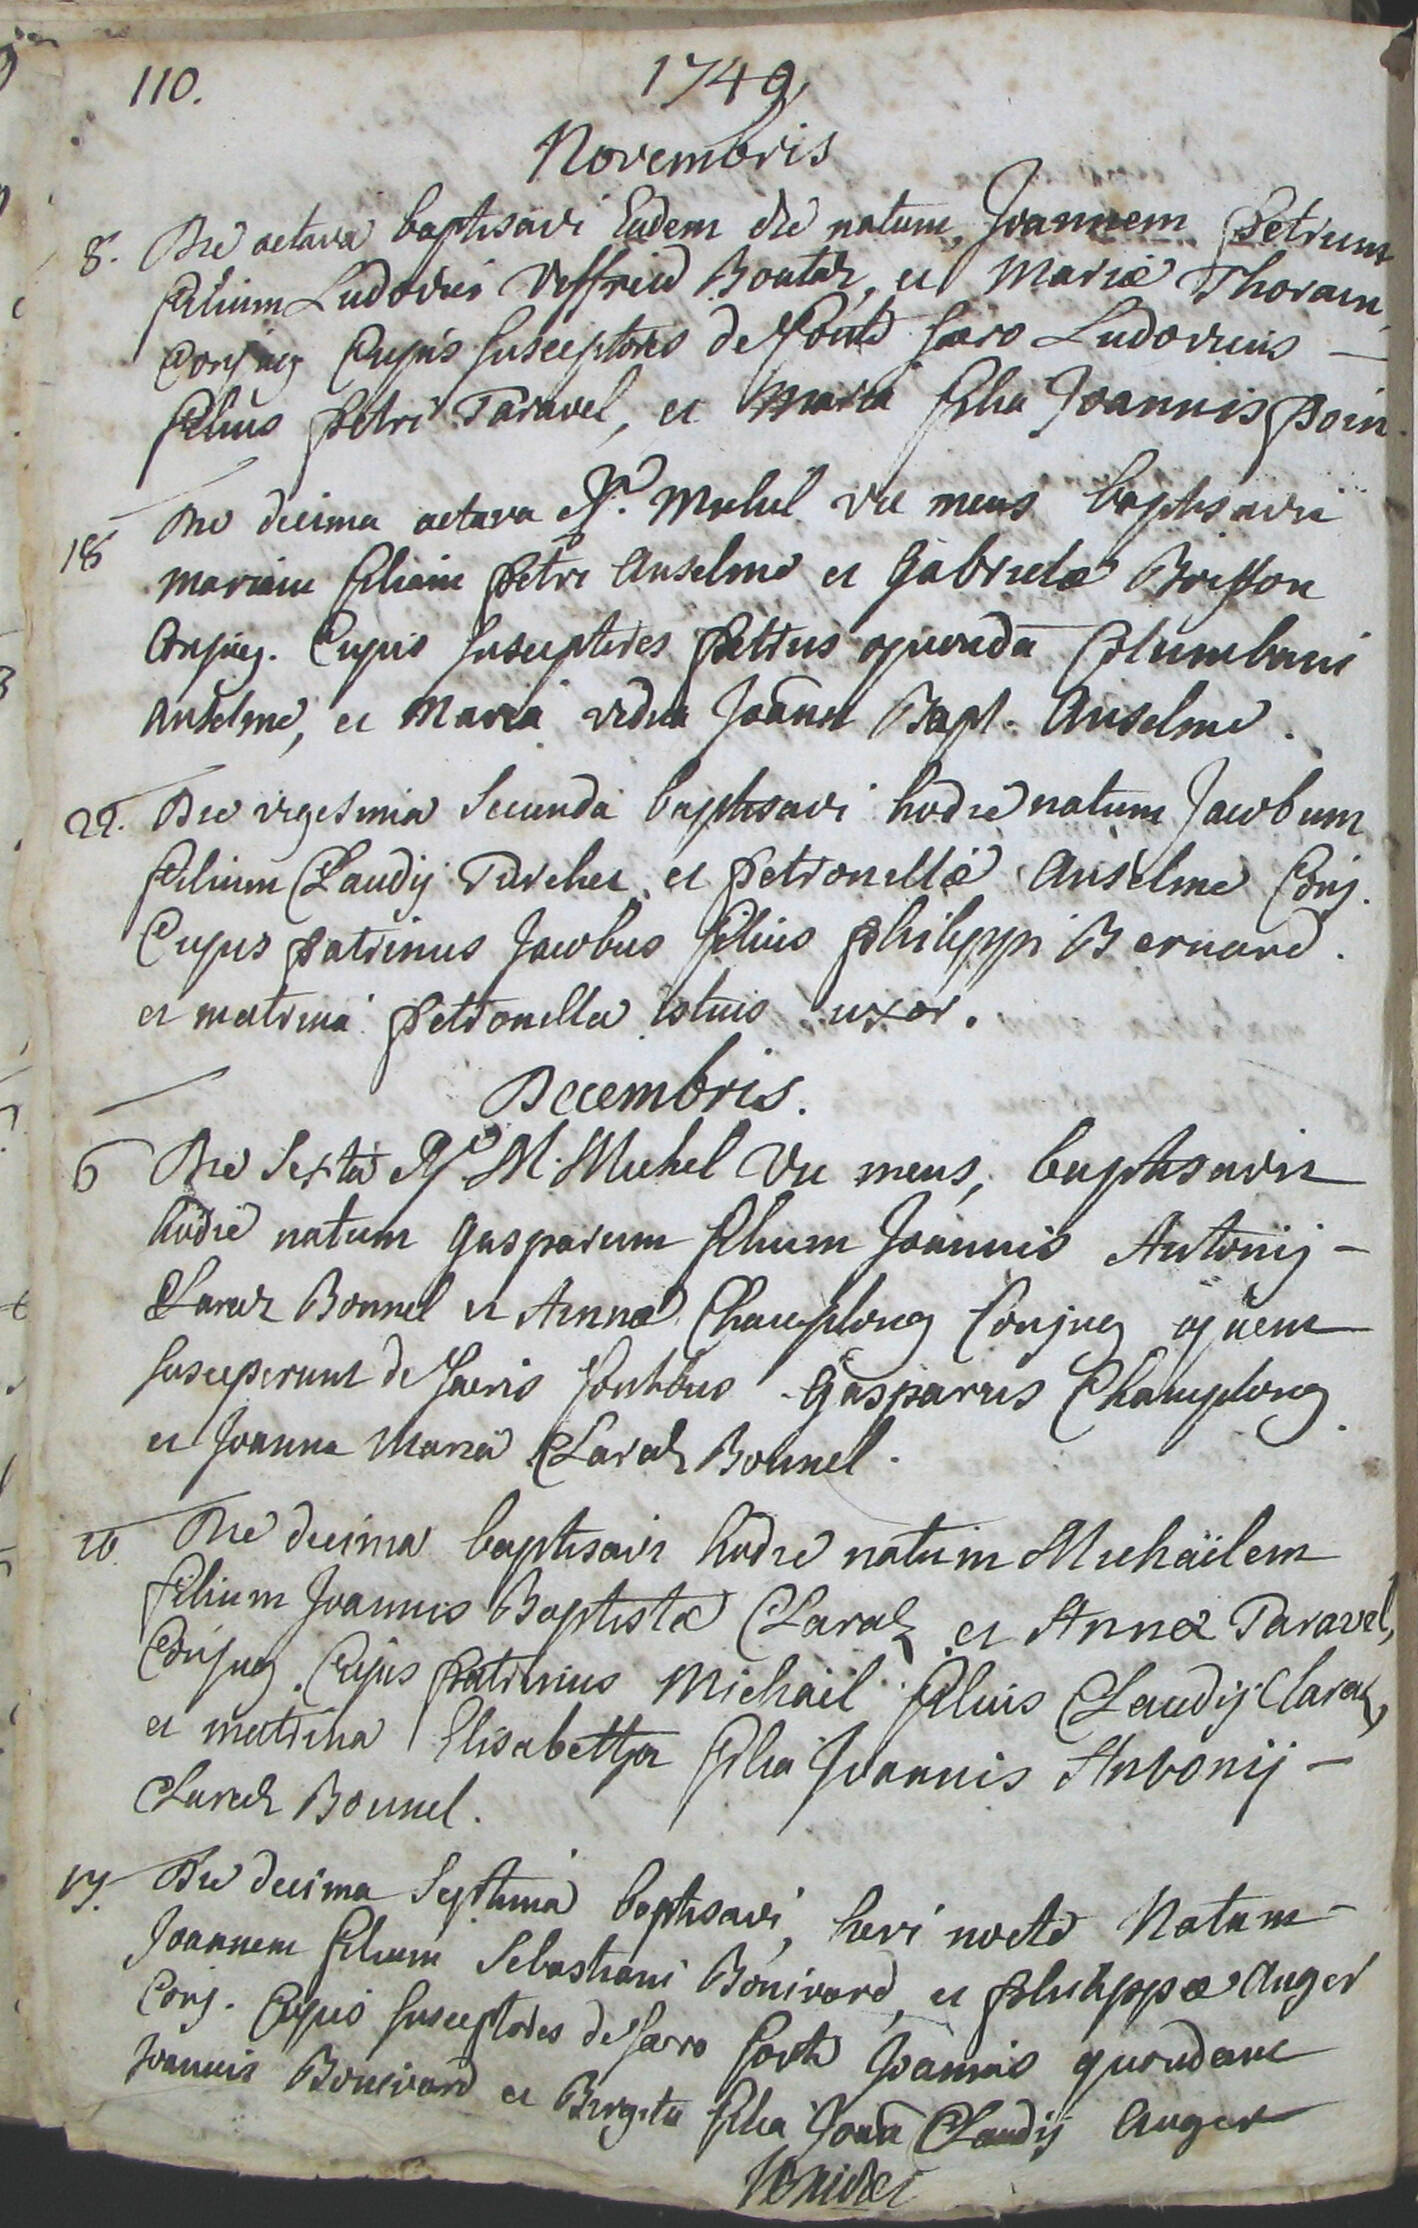 110.
1749
Novembris
8. Die octava baptisavi Eadem die natum, Joannem Petrum
filium Ludovici Boutaz, et Mariæ Thorain,
Conjug Cujus susceptores de fonte sacro Ludovicus —
filius Petri Paravel, et Maria filia Joannis Poin.
18 Die decima octava Rd. Michel vic meus baptisavit
Mariam filiam Petri Anselme et Gabrielæ Brisson
Conjug. Cujus susceptores Petrus quondā Columbani
Anselme, et Maria vidua Joānn Bapt. Anselme.
22. Die vigesima secunda baptisavi hodie natum Jacobum
filium Claudij Turcher et Petronillæ Anselme Conj.
Cujus patrinus Jacobus filius Philippi Bernard.
et matrina Petronilla istius uxor.
Decembris.
6 Die Sexta Rd M. Michel Vic meus, baptisavit
hodie natum Gasparum filium Joannis Antonij —
Claraz Bonnel et Annæ Champlong Conjug quem
susceperunt de sacris fontibus Gasparus Champlong
et Joanna Maria Claraz Bonnel.
10. Die decima baptisavi hodie natum Michaëlem
filium Joannis Baptistæ Claraz et Annæ Paravel,
Conjug. Cujus Patrinus Michaël filius Claudij Claraz,
et matrina Elisabettha filia Joannis Antonij —
Claraz Bonnel.
17. Die decima Septima baptisavi, heri nocte Natum —
Joannem filium Sebastiani Bonivard, et Philippæ Auger
Conj. Cujus susceptores de sacro fonte Joannis quondam
Joannis Bonivard et Birgita filia Joan̄ Claudij Auger